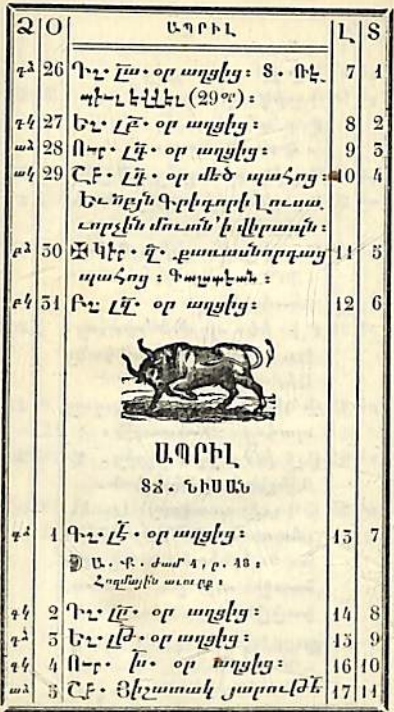 Ձ Օ ԱՊՐԻԼ Լ Տ
դձ 26 Դշ. լա. օր աղցից: Տ. Ռէ- 7 1
պէուլ էվվէլ (29օր):
դկ 27 Եշ. լբ. օր աղցից: 8 2
աձ 28 Ուր. լգ. օր աղցից: 9 3
ակ 29 Շբ. լդ. օր մեծ պահոց: 10 4
Եւ սբյն Գրիգորի Լուսա-
ւորչին մուտն 'ի վիրապն:
բձ 30 ✠ Կիր. զ. քառասնորդաց 11 5
պահոց: Գալստեան:
բկ 31 Բշ լզ. օր աղցից: 12 6
ԱՊՐԻԼ
ՏՃ. ՆԻՍԱՆ
գձ 1 Գշ. լէ. օր աղցից: 13 7
Ա. Ք. ժամ 4, ր. 48:
Հողմային աւուրք:
գկ 2 Դշ. լը. օր աղցից: 14 8
դձ 3 Եշ. լթ. օր աղցից: 15 9
դկ 4 Ուր. խ. օր աղցից: 16 10
աձ 5 Շբ. Յիշատակ յարութէ 17 11